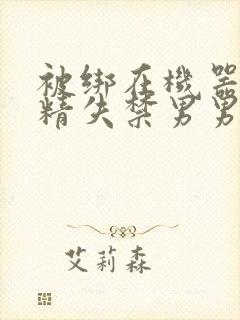 被绑在機器
精失禁男男
艾莉森